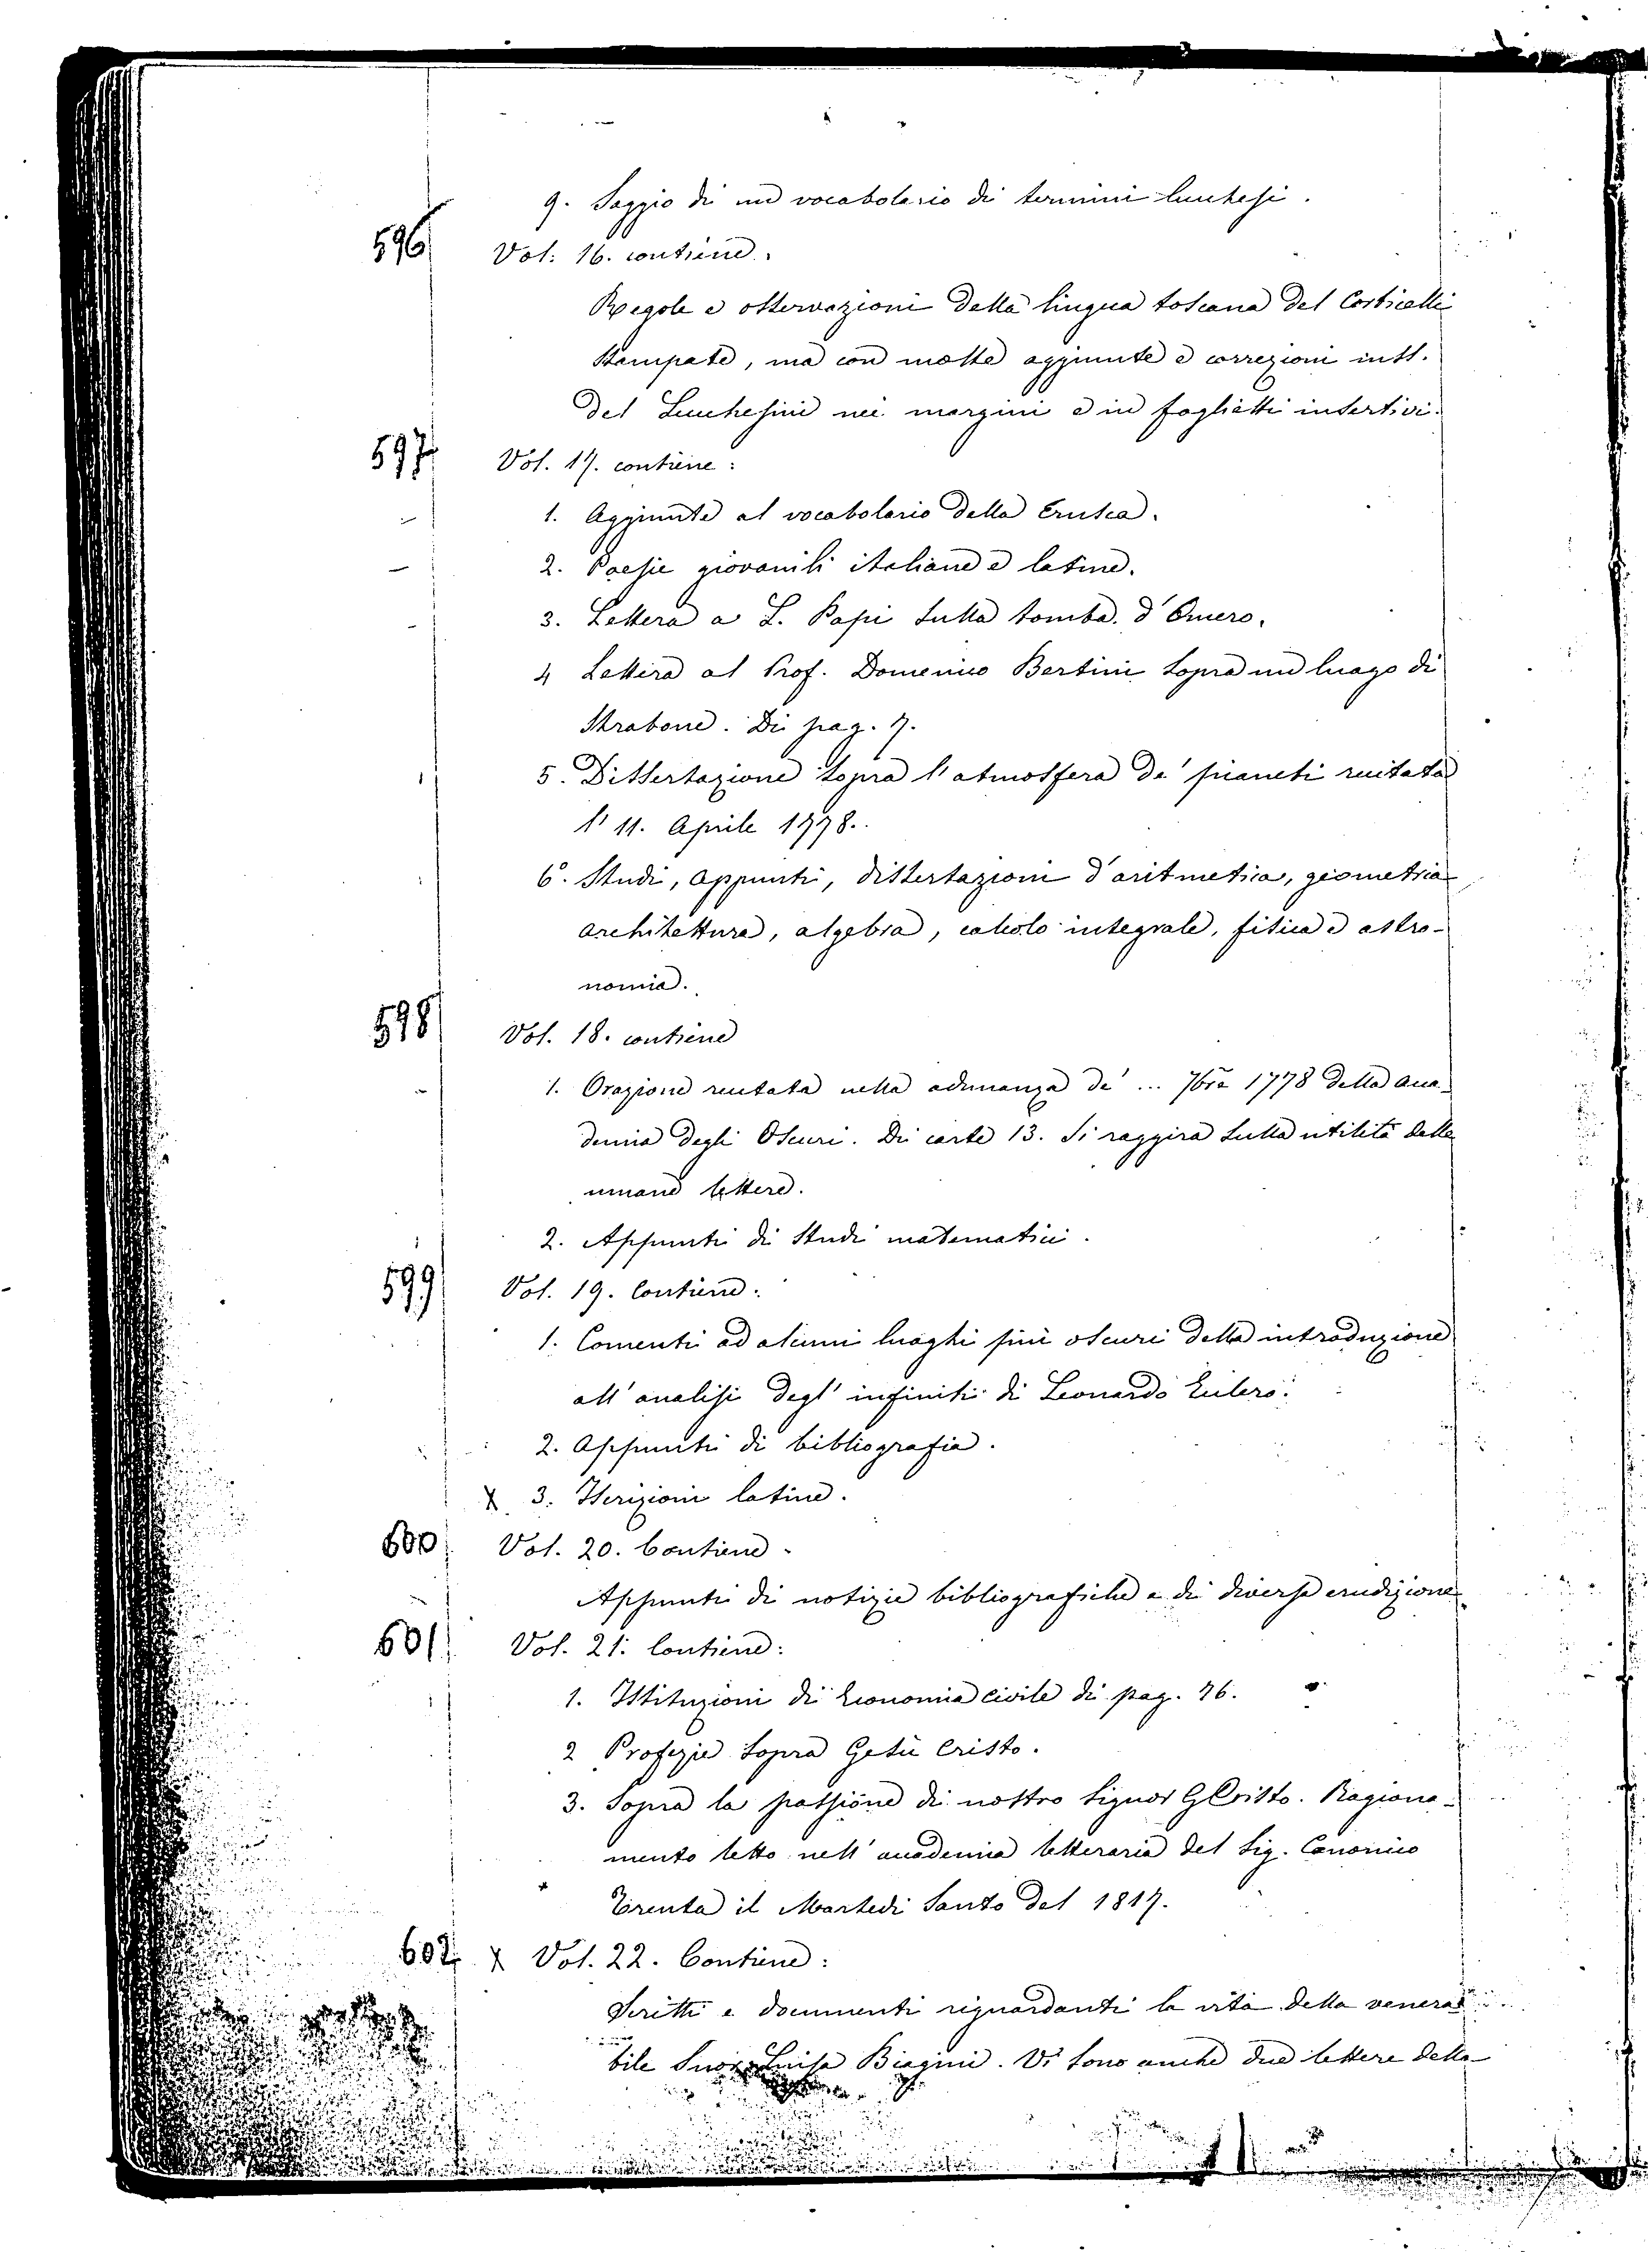 9. Saggio di un vocabolario di termini lucchesi.
596 Vol: 16. contiene.
Regole e osservazioni della lingua toscana del Corticelli
stampate, ma con molte aggiunte e correzioni mss.
del Lucchesini nei margini e in foglietti insertivi.
597 Vol. 17. contiene:
1. Aggiunte al vocabolario della Crusca.
2. Poesie giovanili italiane e latine.
3. Lettera a L. Papi sulla tomba d'Omero.
4 Lettera al Prof. Domenico Bertini sopra un luogo di
Strabone. Di pag. 7.
5. Dissertazione sopra l'atmosfera de' pianeti recitata
l' 11. Aprile 1778.
6. Studi, appunti, dissertazioni d'aritmetica, geometria
architettura, algebra, calcolo integrale, fisica e astro-
nomia.
598 Vol. 18. contiene
1. Orazione recitata nella adunanza de' ... 7bre 1778 della acca-
demia degli Oscuri. Di carte 13. Si raggira sulla utilità delle
umane lettere.
2. Appunti di studi matematici.
599 Vol. 19. Contiene:
1. Comenti ad alcuni luoghi più oscuri della introduzione
all' analisi degl' infiniti di Leonardo Eulero.
2. Appunti di bibliografia.
X 3. Iscrizioni latine.
600 Vol. 20. Contiene.
Appunti di notizie bibliografiche e di diversa erudizione
601 Vol. 21. Contiene:
1. Istituzioni di Economia civile di pag. 76.
2 Profezie sopra Gesù Cristo.
3. Sopra la passione di nostro Signor G Cristo. Ragiona-
mento letto nell' accademia letteraria del Sig. Canonico
Trenta il Martedì Santo del 1817.
602 X Vol. 22. Contiene:
Scritti e documenti riguardanti la vita della venera
bile Suor Luisa Biagini. Vi sono anche due lettere della